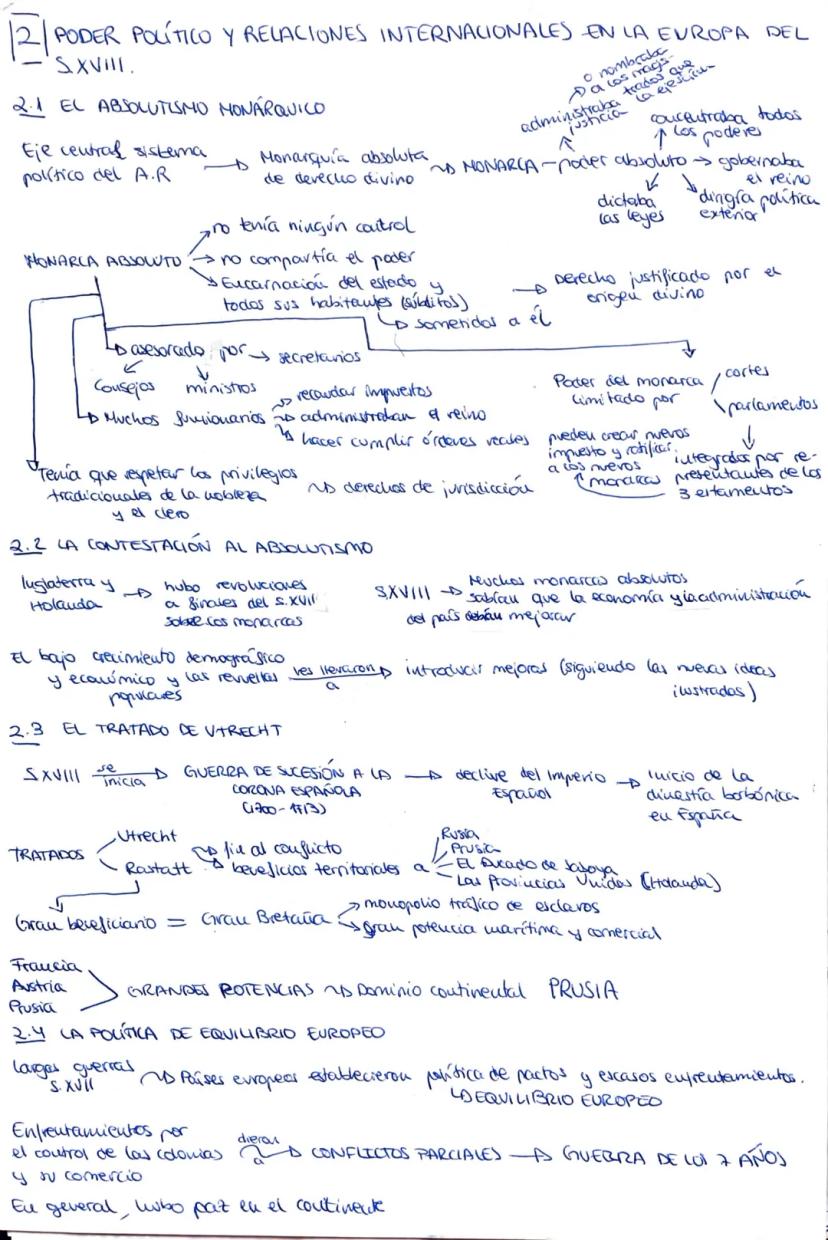 2 PODER POLÍTICO Y RELACIONES INTERNACIONALES EN LA EUROPA DEL
S.XVIII.
2.1 EL ABSOLUTISMO MONÁRQUICO
o nombraba
a los magis-
trados que
la ejercían
administraba
justicia
concentraba todos
los poderes
Eje central sistema
político del A.R → Monarquía absoluta
de derecho divino → MONARCA - poder absoluto → gobernaba
el reino
dictaba
las leyes
dirigía política
exterior
no tenía ningún control
MONARCA ABSOLUTO → no compartía el poder
Encarnación del estado y
todos sus habitantes (súbditos)
→ Derecho justificado por el
origen divino
→ sometidos a él
asesorado por → secretarios
Consejos ministros
Muchos funcionarios → recaudar impuestos
→ administraban el reino
→ hacer cumplir órdenes reales
Poder del monarca
limitado por
cortes
parlamentos
pueden crear nuevos
impuesto y ratificar
a los nuevos
monarcas
integrados por re-
presentantes de los
3 estamentos
Tenía que respetar los privilegios
tradicionales de la nobleza
y el clero
→ derechos de jurisdicción
2.2 LA CONTESTACIÓN AL ABSOLUTISMO
Inglaterra y
Holanda → hubo revoluciones
a finales del S.XVII
sobre los monarcas
S.XVIII → Muchos monarcas absolutos
sabían que la economía y la administración
del país debían mejorar
El bajo crecimiento demográfico
y económico y las revueltas
populares
les llevaron
a
→ introducir mejoras (siguiendo las nuevas ideas
ilustradas)
2.3 EL TRATADO DE UTRECHT
S.XVIII se
inicia → GUERRA DE SUCESIÓN A LA
CORONA ESPAÑOLA
(1700-1713)
→ declive del Imperio
Español
→ inicio de la
dinastía borbónica
en España
TRATADOS
Utrecht
Rastatt
→ fin al conflicto
→ beneficios territoriales a
Rusia
Prusia
El Ducado de Saboya
Las Provincias Unidas (Holanda)
Gran beneficiario = Gran Bretaña → monopolio tráfico de esclavos
→ gran potencia marítima y comercial
Francia
Austria
Prusia
GRANDES POTENCIAS → Dominio continental PRUSIA
2.4 LA POLÍTICA DE EQUILIBRIO EUROPEO
Largas guerras
S.XVII
→ Países europeos establecieron política de pactos y escasos enfrentamientos.
→ EQUILIBRIO EUROPEO
Enfrentamientos por
el control de las colonias
y su comercio
dieron
a
→ CONFLICTOS PARCIALES → GUERRA DE LOS 7 AÑOS
En general, hubo paz en el continente